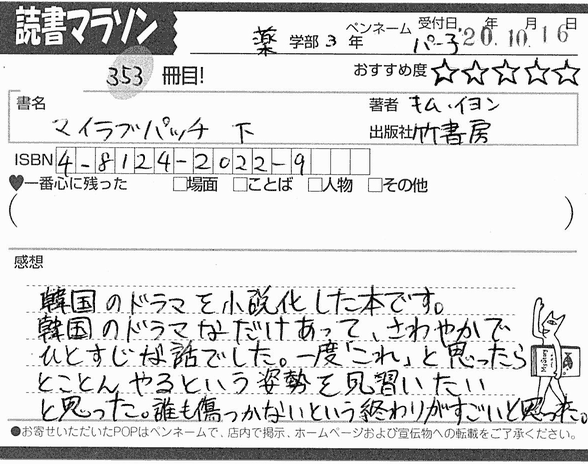 読書マラソン
薬 学部 3 年 ペンネーム パー子 受付日 '20年 10月 16日
353 冊目!
おすすめ度 ☆☆☆☆☆
書名
マイラブパッチ 下
著者 キム・イヨン
出版社 竹書房
ISBN 4-8124-2022-9
♥一番心に残った □場面 □ことば □人物 □その他
( )
感想
韓国のドラマを小説化した本です。
韓国のドラマなだけあって、さわやかで
ひとすじな話でした。一度「これ」と思ったら
とことんやるという姿勢を見習いたい
と思った。誰も傷つかないという終わりがすごいと思った。
Mystery
●お寄せいただいたPOPはペンネームで、店内で掲示、ホームページおよび宣伝物への転載をご了承ください。